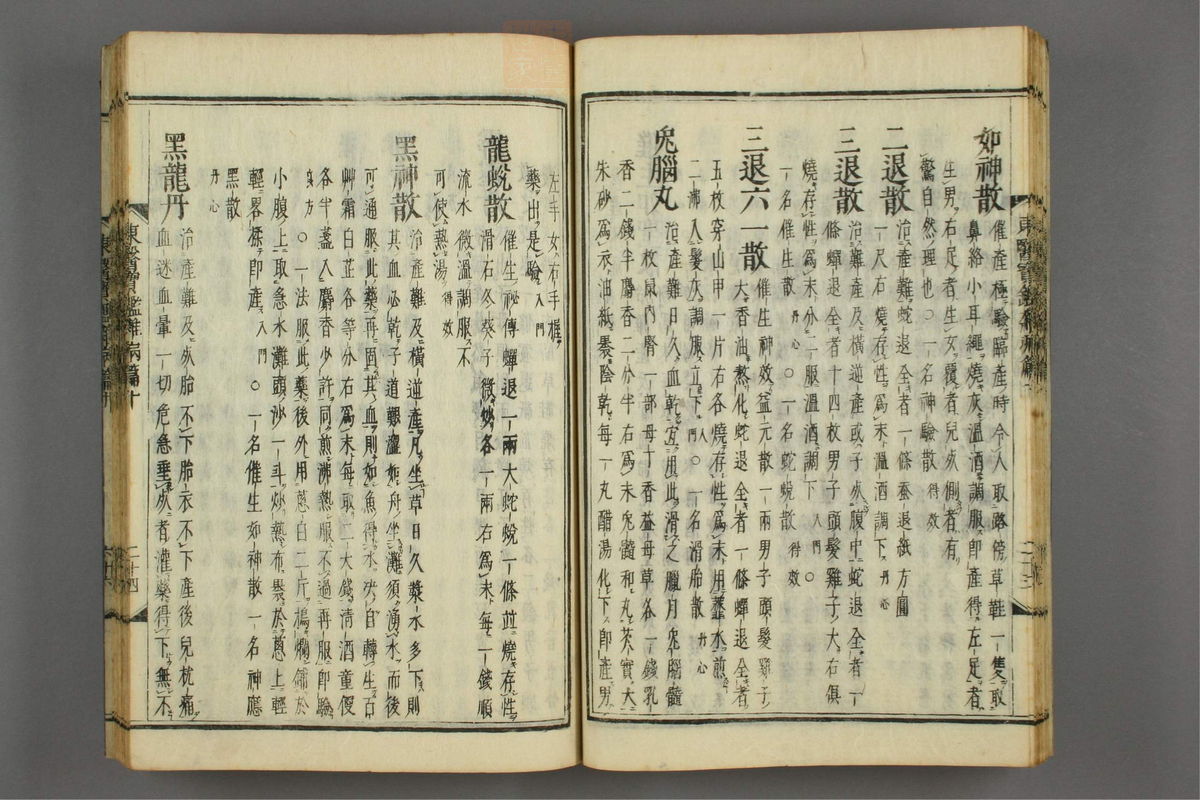 如神散 催產極驗臨產時令人取路傍草鞋一隻取
鼻絡小耳繩燒灰溫酒調服卽產得左足者
生男右足者生女覆者兒死側者有
驚自然理也○一名神驗散 得效
二退散 治產難蛇退全者一條蚕退紙方圓
一尺右燒存性爲末溫酒調下 丹心
三退散 治難產及橫逆產或子死腹中蛇退全者一
條蟬退全者十四枚男子頭髮雞子大右俱
燒存性爲末分二服溫酒調下 入門 ○
一名催生散 丹心 ○一名蛇蛻散 得效
三退六一散 催生神效益元散一兩男子頭髮雞子
大香油熬化蛇退全者一條蟬退全者
五枚穿山甲一片右各燒存性爲末用虀水煎
二沸入髮灰調服立下 入門 ○一名滑胎散 丹心
兎腦丸 治產難日久血乾宜用此滑之臘月兎腦髓
一枚鼠內腎一部母丁香益母草各一錢乳
香二錢半麝香二分半右爲末兎髓和丸芡實大
朱砂爲衣油紙褁陰乾每一丸醋湯化下卽產男
左手女右手握
藥出是驗 入門
龍蛻散 催生祕傳蟬退一兩大蛇蛻一條竝燒存性
滑石冬葵子微炒各一兩右爲末每一錢順
流水微溫調服不
可使熱湯 得效
黑神散 治產難及橫逆產凡坐草日久漿水多下則
其血必乾子道艱澁如舟坐灘須湧水而後
可通服此藥再固其血則如魚得水決自轉生百
艸霜白芷各等分右爲末每取二大錢淸酒童便
各半盞入麝香少許同煎沸熱服不過再服卽驗
良方 ○一法服此藥後外用蔥白二斤搗爛鋪於
小腹上取急水灘頭沙一斗炒熱布褁於蔥上輕
輕畧揉卽產 入門 ○一名催生如神散一名神應
黑散
丹心
黑龍丹 治產難及死胎不下胎衣不下產後兒枕痛
血迷血暈一切危急垂死者灌藥得下無不
東醫寶鑑雜病篇十
二十四